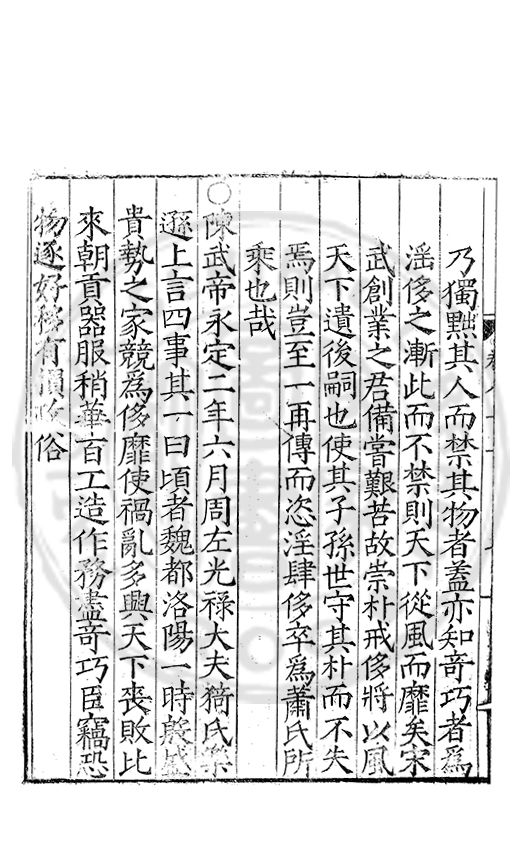 乃獨黜其人而禁其物者蓋亦知竒巧者爲
滛侈之漸此而不禁則天下從風而靡矣宋
武創業之君備嘗艱苦故崇朴戒侈將以風
天下遺後嗣也使其子孫世守其朴而不失
焉則豈至一再傳而恣淫肆侈卒爲蕭氏所
乘也哉
○陳武帝永定二年六月周左光禄大夫猗氏樂
遜上言四事其一曰頃者魏都洛陽一時殷盛
貴勢之家競為侈靡使禍亂多興天下喪敗比
來朝貢器服稍華百工造作務盡竒巧臣竊恐
物逐好移有損政俗